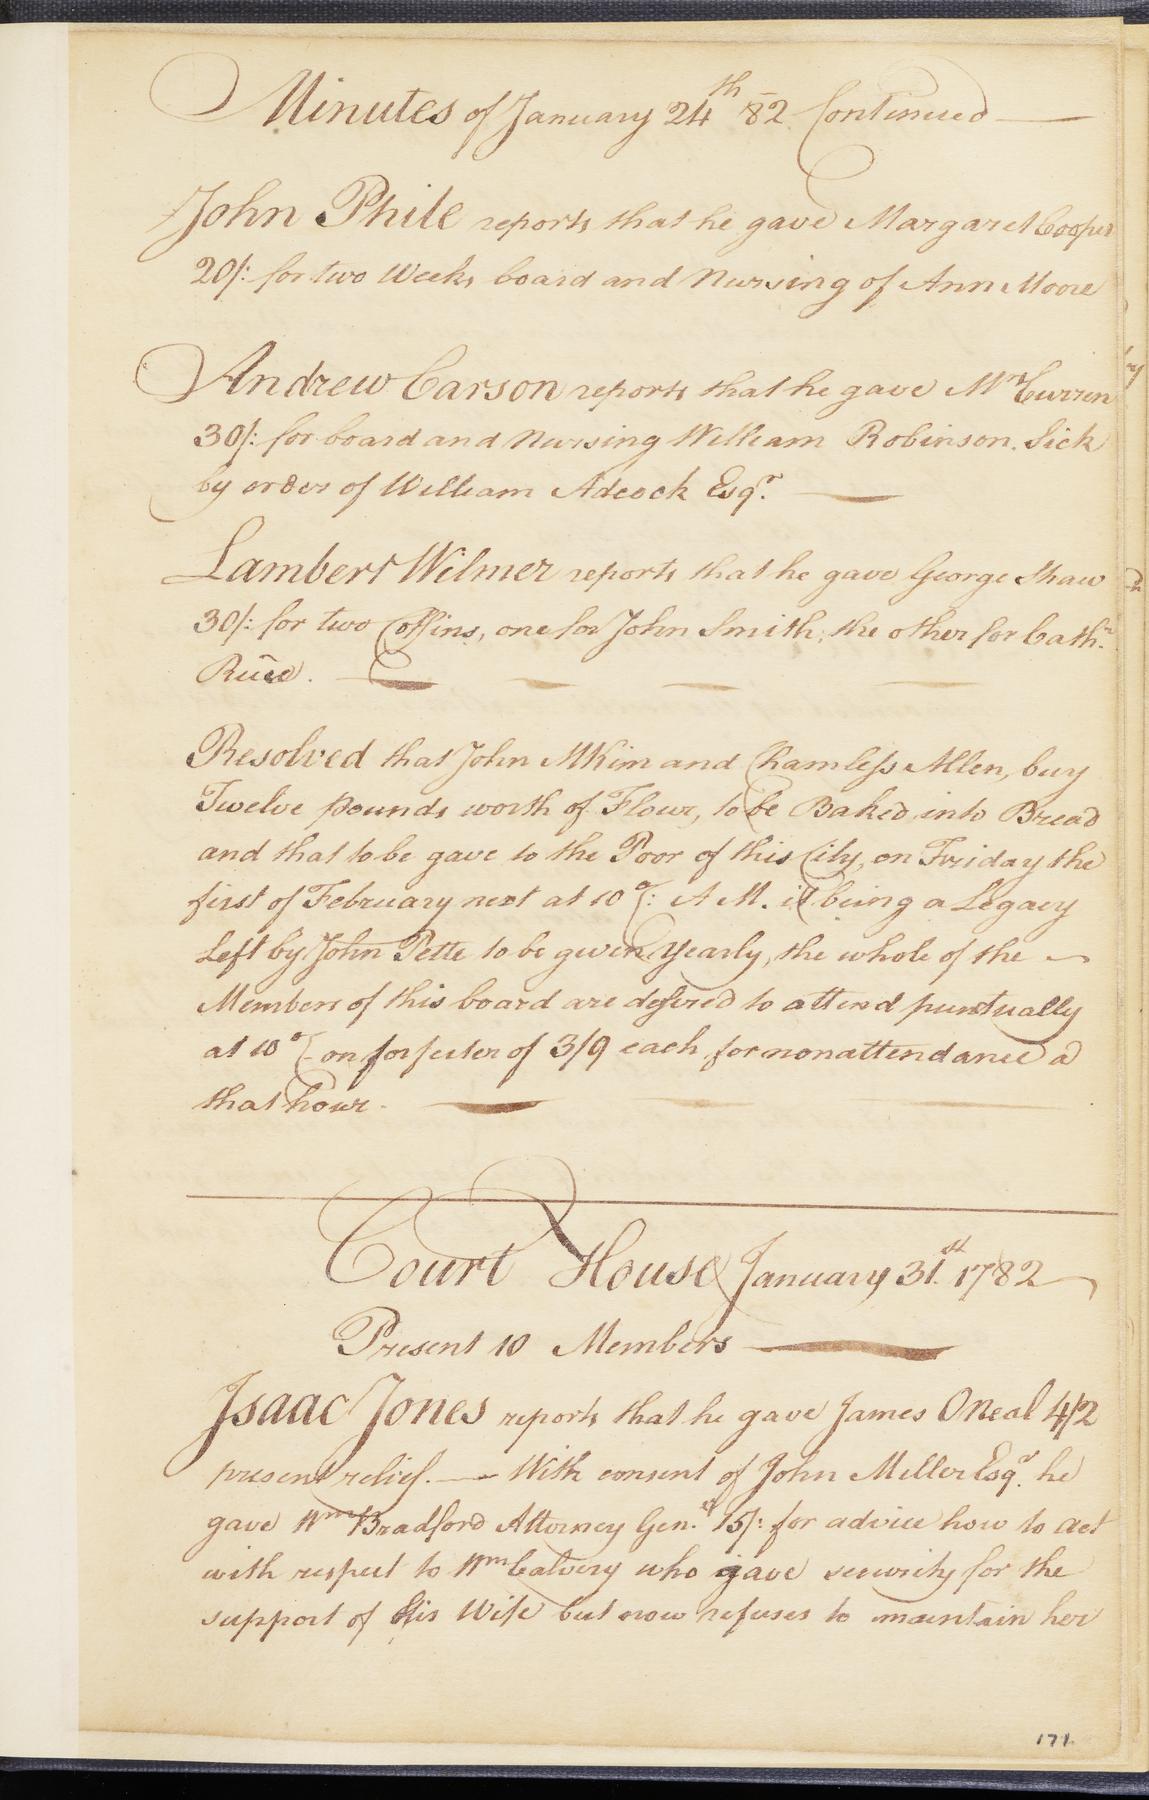 Minutes of January 24th 82 Continued
John Phile reports that he gave Margaret Cooper
20/: for two Weeks board and Nursing of Ann Moore
Andrew Carson reports that he gave Mrs Curren
30/: for board and Nursing William Robinson. Sick
by order of William Adcock Esqr.
Lambert Wilmer reports that he gave George Shaw
30/: for two Coffins, one for John Smith, the other for Cathn.
Resolved that John MKim and Chamless Allen, buy
Twelve pounds worth of Flour, to be Baked into Bread
and that to be gave to the Poor of this City, on Friday the
first of February next at 10 oC: A M. it being a Legacy
Left by John Petty to be given Yearly, the whole of the
Members of this board are desired to attend punctually
at 10 oC on forfeiter of 3/9 each for nonattendance a
that hour.
Court House January 31st. 1782
Present 10 Members
Isaac Jones reports that he gave James ONeal 4/2
present relief. — With consent of John Miller Esqr. he
gave Wm Bradford Attorney Gen.l 15/: for advice how to act
with respect to Wm Calvery who gave security for the
support of His Wife but now refuses to maintain her
171